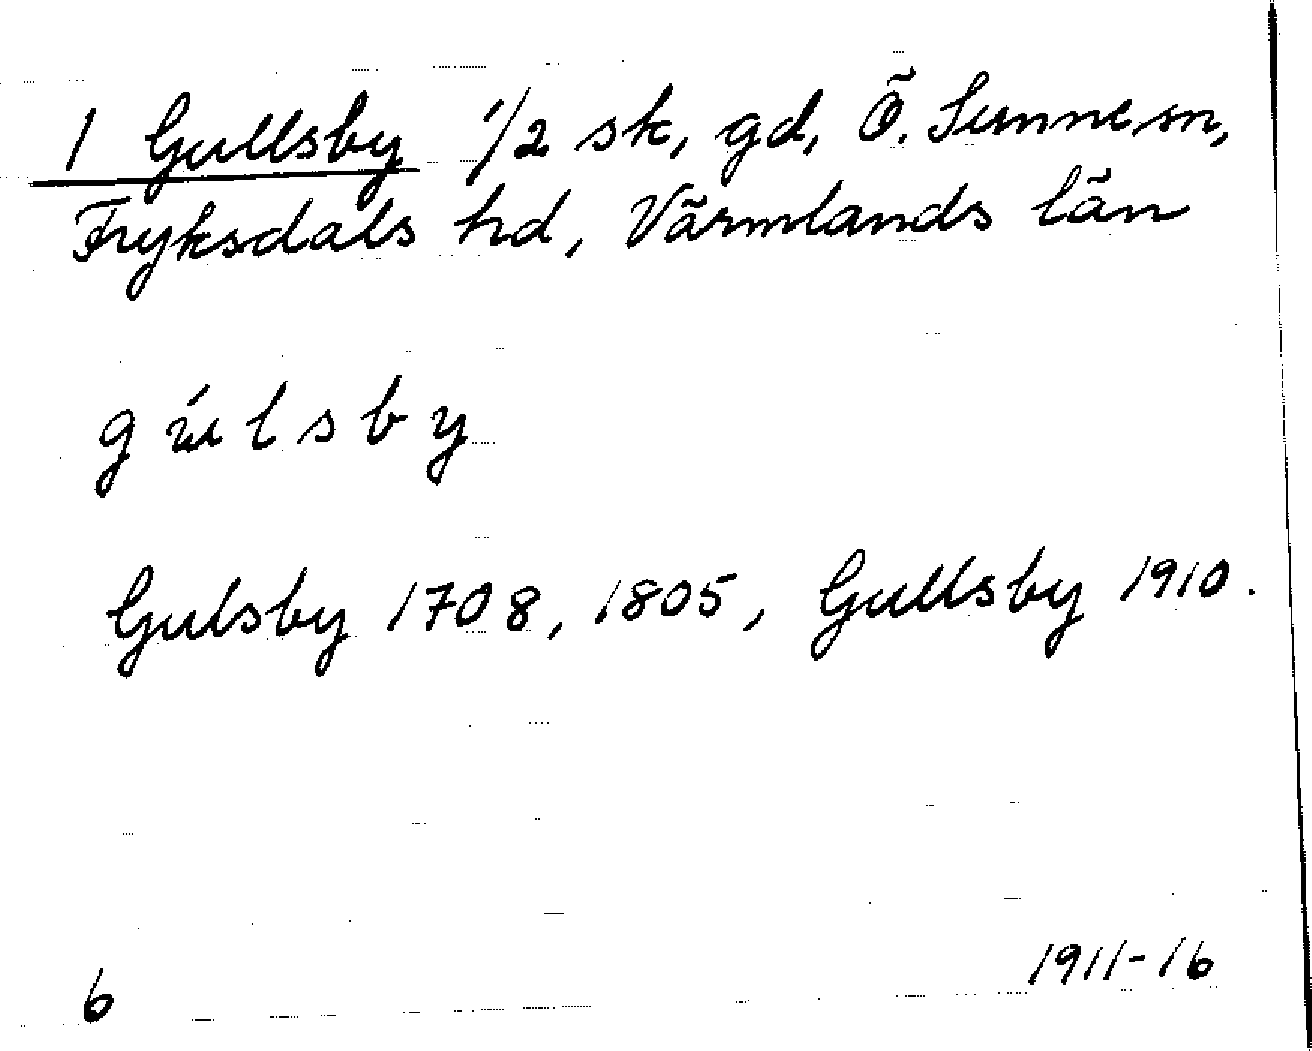 1 Gullsby 1/2 sk, gd, Ö. Sunnem sn,
Fryksdals hd, Värmlands län
gúlsby
Gulsby 1708, 1805, Gullsby 1910.
6 1911-16